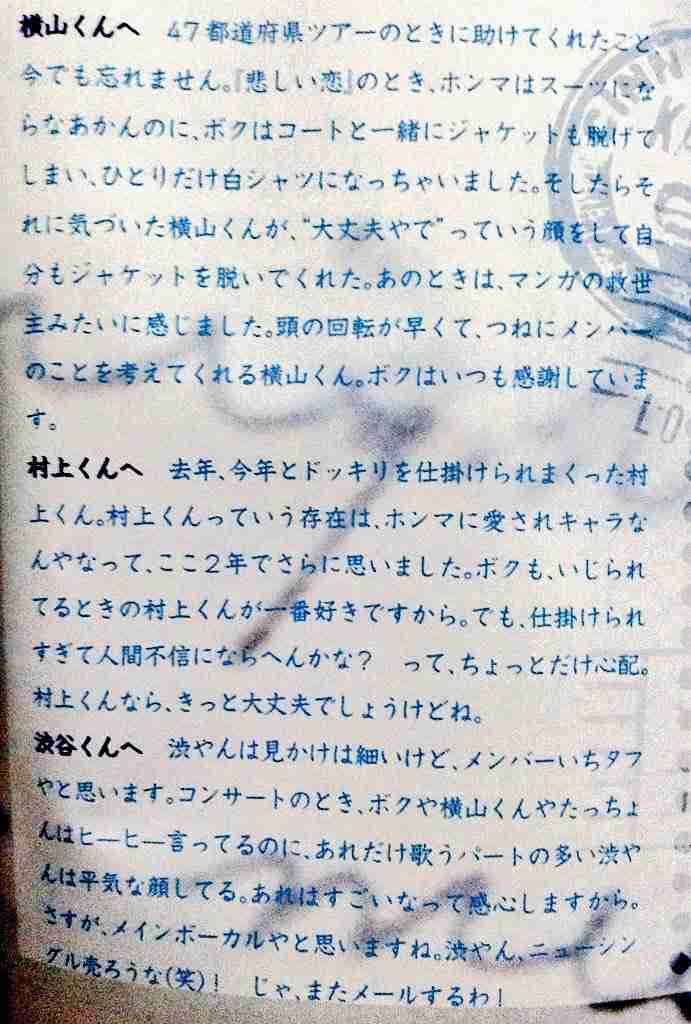 横山くんへ　47都道府県ツアーのときに助けてくれたこと、
今でも忘れません。『悲しい恋』のとき、ホンマはスーツにな
らなあかんのに、ボクはコートと一緒にジャケットも脱げて
しまい、ひとりだけ白シャツになっちゃいました。そしたらそ
れに気づいた横山くんが、“大丈夫やで”っていう顔をして自
分もジャケットを脱いでくれた。あのときは、マンガの救世
主みたいに感じました。頭の回転が早くて、つねにメンバー
のことを考えてくれる横山くん。ボクはいつも感謝していま
す。
村上くんへ　去年、今年とドッキリを仕掛けられまくった村
上くん。村上くんっていう存在は、ホンマに愛されキャラな
んやなって、ここ2年でさらに思いました。ボクも、いじられ
てるときの村上くんが一番好きですから。でも、仕掛けられ
すぎて人間不信にならへんかな？　って、ちょっとだけ心配。
村上くんなら、きっと大丈夫でしょうけどね。
渋谷くんへ　渋やんは見かけは細いけど、メンバーいちタフ
やと思います。コンサートのとき、ボクや横山くんやたっちょ
んはヒーヒー言ってるのに、あれだけ歌うパートの多い渋や
んは平気な顔してる。あれはすごいなって感心しますから。
さすが、メインボーカルやと思いますね。渋やん、ニューシン
グル売ろうな(笑)！　じゃ、またメールするわ！